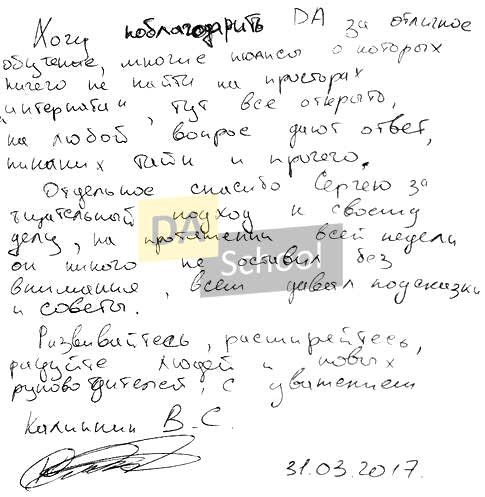 Хочу поблагодарить DA за отличное
обучение, многие нюансы о которых
ничего не найти на просторах
"интернати", тут все открыто,
на любой вопрос дают ответ,
никаких тайн и прочего.
Отдельное спасибо Сергею за
тщательный подход к своему
делу, на протяжении всей недели
он никого не оставил без
внимания, всем давал подсказки
и советы.
Развивайтесь, расширяйтесь,
радуйте людей и новых
руководителей, с уважением
Калинин В.С.
31.03.2017.
DA
School